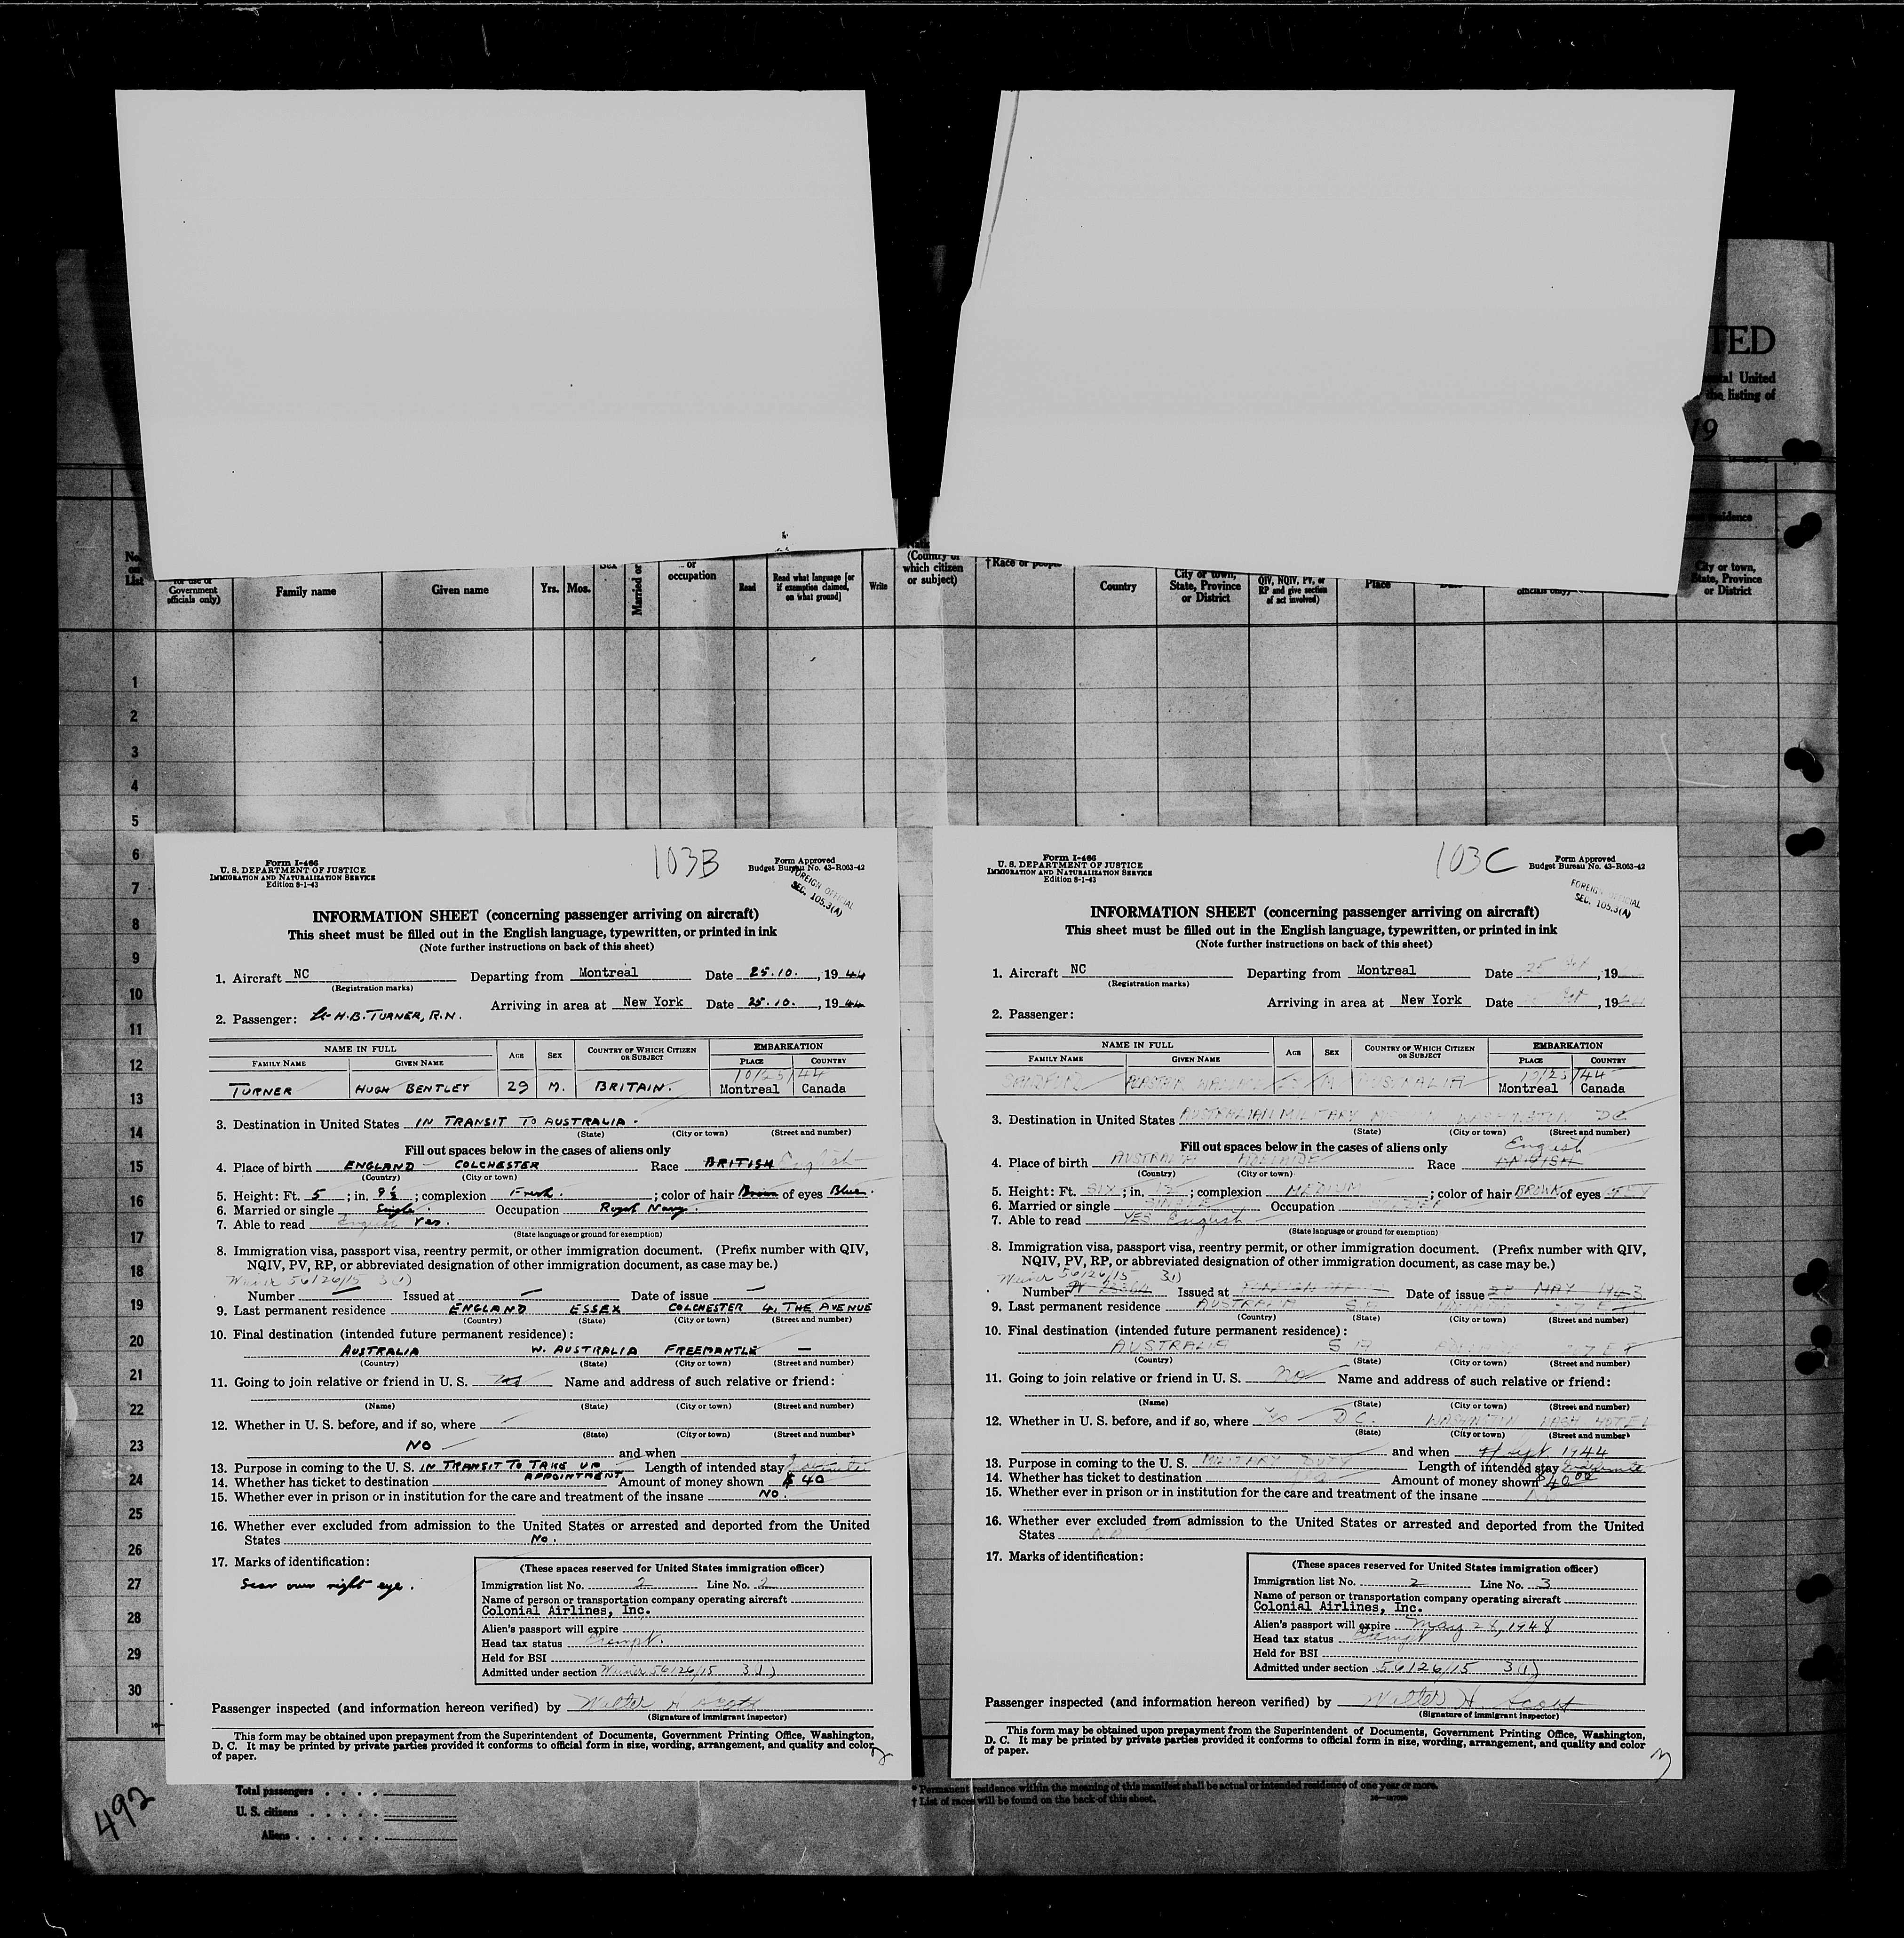 TED
United
the listing of
19
No. on List
Government officials only)
Family name
Given name
Yrs.
Mos.
Sex
Married or
or occupation
Read
Read what language [or if exemption claimed, on what ground]
Write
(Country of which citizen or subject)
†Race or people
Country
City or town, State, Province or District
QIV, NQIV, PV, or RP and give section of act involved)
Place
officials only)
City or town, State, Province or District
1
2
3
4
5
6
7
8
9
10
11
12
13
14
15
16
17
18
19
20
21
22
23
24
25
26
27
28
29
30
Form I-466
U. S. DEPARTMENT OF JUSTICE
IMMIGRATION AND NATURALIZATION SERVICE
Edition 8-1-43
103B
Form Approved
Budget Bureau No. 43-R063-42
FOREIGN OFFICIAL
SEC. 105.3(A)
INFORMATION SHEET (concerning passenger arriving on aircraft)
This sheet must be filled out in the English language, typewritten, or printed in ink
(Note further instructions on back of this sheet)
1. Aircraft NC Departing from Montreal Date 25.10., 1944
(Registration marks)
Arriving in area at New York Date 25.10., 1944
2. Passenger: Lt H.B. TURNER, R.N.
NAME IN FULL AGE SEX COUNTRY OF WHICH CITIZEN OR SUBJECT EMBARKATION
FAMILY NAME GIVEN NAME PLACE COUNTRY
10/25/44
TURNER HUGH BENTLEY 29 M. BRITAIN. Montreal Canada
3. Destination in United States IN TRANSIT TO AUSTRALIA.
(State) (City or town) (Street and number)
Fill out spaces below in the cases of aliens only
4. Place of birth ENGLAND - COLCHESTER Race BRITISH English
(Country) (City or town)
5. Height: Ft. 5; in. 9½; complexion Fresh.; color of hair Brown of eyes Blue.
6. Married or single Single. Occupation Royal Navy.
7. Able to read English Yes.
(State language or ground for exemption)
8. Immigration visa, passport visa, reentry permit, or other immigration document. (Prefix number with QIV,
NQIV, PV, RP, or abbreviated designation of other immigration document, as case may be.)
Waiver 56126/15 3(1)
Number — Issued at — Date of issue —
9. Last permanent residence ENGLAND ESSEX COLCHESTER 4, THE AVENUE
(Country) (State) (City or town) (Street and number)
10. Final destination (intended future permanent residence):
AUSTRALIA W. AUSTRALIA FREEMANTLE —
(Country) (State) (City or town) (Street and number)
11. Going to join relative or friend in U. S. Name and address of such relative or friend:
(Name) (State) (City or town) (Street and number)
12. Whether in U. S. before, and if so, where
(State) (City or town) (Street and number)
NO and when
13. Purpose in coming to the U. S. IN TRANSIT TO TAKE UP APPOINTMENT Length of intended stay
14. Whether has ticket to destination Amount of money shown $ 40
15. Whether ever in prison or in institution for the care and treatment of the insane NO.
16. Whether ever excluded from admission to the United States or arrested and deported from the United
States No.
17. Marks of identification:
Scar over right eye.
(These spaces reserved for United States immigration officer)
Immigration list No. 2 Line No. 2
Name of person or transportation company operating aircraft
Colonial Airlines, Inc.
Alien's passport will expire
Head tax status Exempt.
Held for BSI
Admitted under section Waiver 56126/15 3(1)
Passenger inspected (and information hereon verified) by Walter H Scott
(Signature of immigrant inspector)
This form may be obtained upon prepayment from the Superintendent of Documents, Government Printing Office, Washington,
D. C. It may be printed by private parties provided it conforms to official form in size, wording, arrangement, and quality and color
of paper.
2
Form I-466
U. S. DEPARTMENT OF JUSTICE
IMMIGRATION AND NATURALIZATION SERVICE
Edition 8-1-43
103C
Form Approved
Budget Bureau No. 43-R063-42
FOREIGN OFFICIAL
SEC. 105.3(A)
INFORMATION SHEET (concerning passenger arriving on aircraft)
This sheet must be filled out in the English language, typewritten, or printed in ink
(Note further instructions on back of this sheet)
1. Aircraft NC Departing from Montreal Date 25 Oct, 19
(Registration marks)
Arriving in area at New York Date Oct, 19
2. Passenger:
NAME IN FULL AGE SEX COUNTRY OF WHICH CITIZEN OR SUBJECT EMBARKATION
FAMILY NAME GIVEN NAME PLACE COUNTRY
10/25/44
SANDFORD M AUSTRALIA Montreal Canada
3. Destination in United States AUSTRALIAN MILITARY MISSION WASHINGTON DC
(State) (City or town) (Street and number)
Fill out spaces below in the cases of aliens only
English
4. Place of birth AUSTRALIA ADELAIDE Race
(Country) (City or town)
5. Height: Ft. SIX; in. ; complexion MEDIUM; color of hair BROWN of eyes GREY
6. Married or single SINGLE Occupation
7. Able to read YES English
(State language or ground for exemption)
8. Immigration visa, passport visa, reentry permit, or other immigration document. (Prefix number with QIV,
NQIV, PV, RP, or abbreviated designation of other immigration document, as case may be.)
Waiver 56126/15 3(1)
Number Issued at Date of issue 28 MAY 1943
9. Last permanent residence AUSTRALIA S A
(Country) (State) (City or town) (Street and number)
10. Final destination (intended future permanent residence):
AUSTRALIA S A ADELAIDE
(Country) (State) (City or town) (Street and number)
11. Going to join relative or friend in U. S. No Name and address of such relative or friend:
(Name) (State) (City or town) (Street and number)
12. Whether in U. S. before, and if so, where Yes D C. WASHINGTON HOTEL
(State) (City or town) (Street and number)
and when Sept 1944
13. Purpose in coming to the U. S. MILITARY DUTY Length of intended stay Indefinite
14. Whether has ticket to destination Amount of money shown $40.00
15. Whether ever in prison or in institution for the care and treatment of the insane
16. Whether ever excluded from admission to the United States or arrested and deported from the United
States NO
17. Marks of identification:
(These spaces reserved for United States immigration officer)
Immigration list No. 2 Line No. 3
Name of person or transportation company operating aircraft
Colonial Airlines, Inc.
Alien's passport will expire May 28, 1948
Head tax status Exempt
Held for BSI
Admitted under section 56126/15 3(1)
Passenger inspected (and information hereon verified) by Walter H. Scott
(Signature of immigrant inspector)
This form may be obtained upon prepayment from the Superintendent of Documents, Government Printing Office, Washington,
D. C. It may be printed by private parties provided it conforms to official form in size, wording, arrangement, and quality and color
of paper.
3
492
Total passengers
U. S. citizens
Aliens
* Permanent residence within the meaning of this manifest shall be actual or intended residence of one year or more.
† List of races will be found on the back of this sheet.